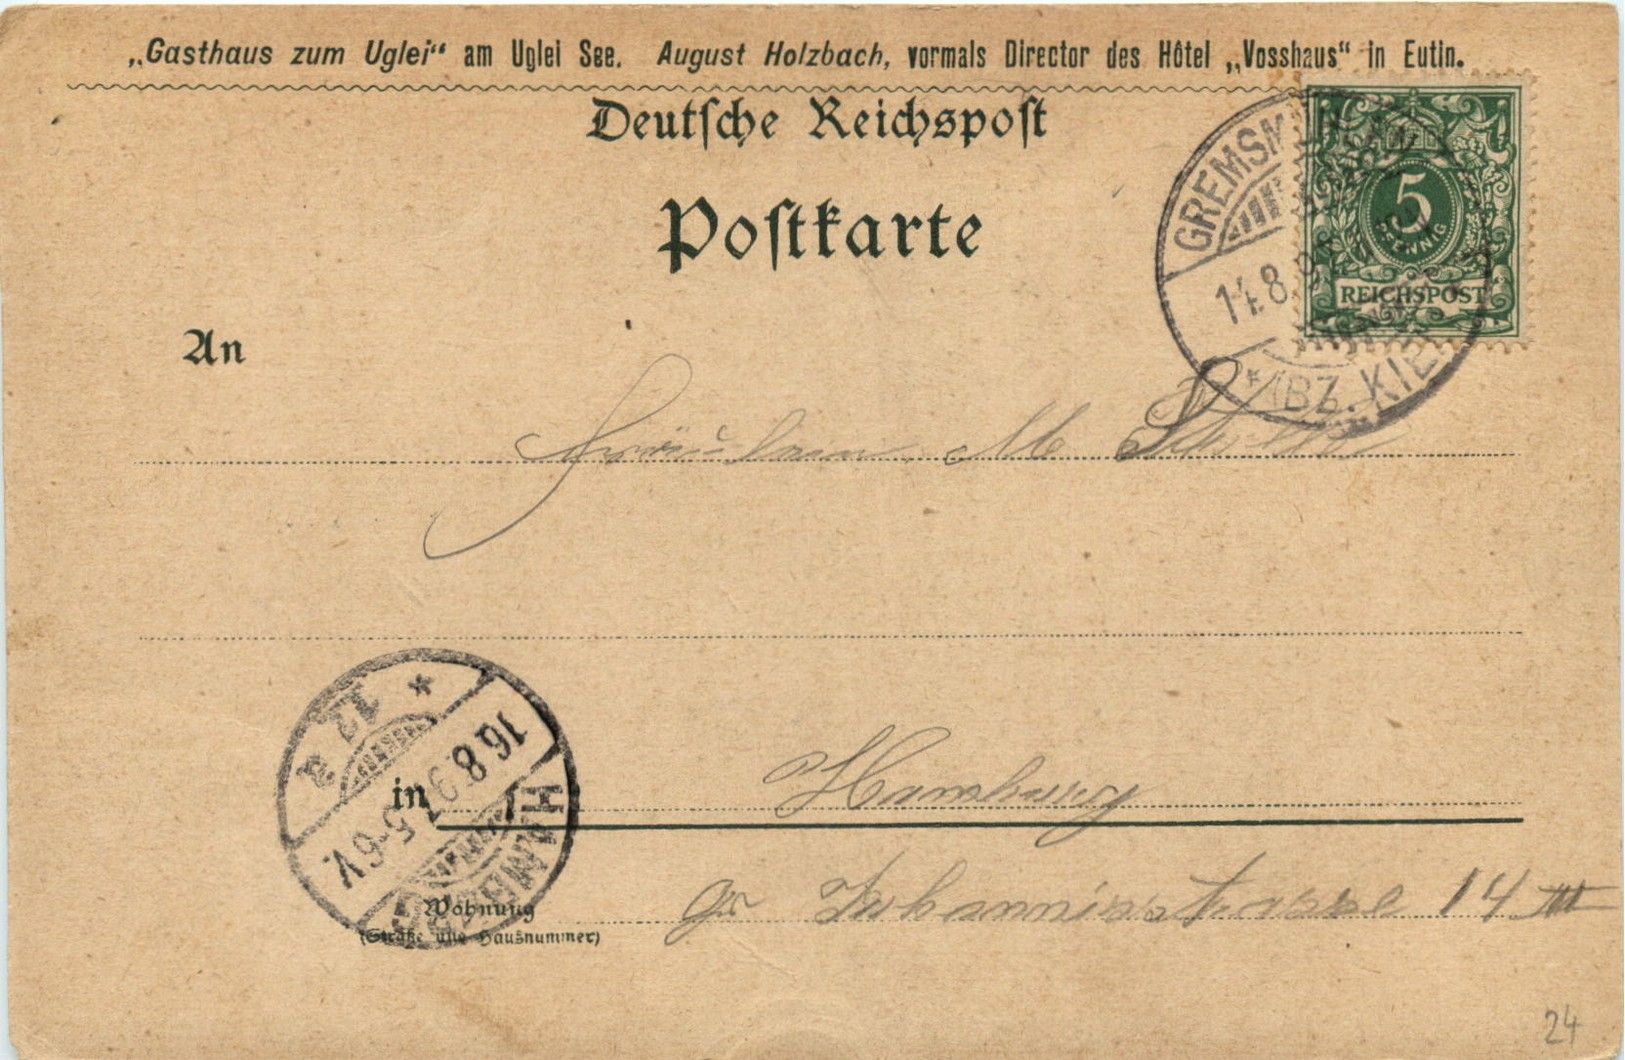 „Gasthaus zum Uglei“ am Uglei See. August Holzbach, vormals Director des Hôtel „Vosshaus“ in Eutin.
Deutsche Reichspost
Postkarte
GREMSM
(BZ. KIEL
5
PFENNIG
REICHSPOST
An
Fräulein M.
HAMBURG
16.8.97
5-6V.
12 a
in Hamburg
Wohnung
(Straße und Hausnummer)
gr Johannisstrasse 14 III
24